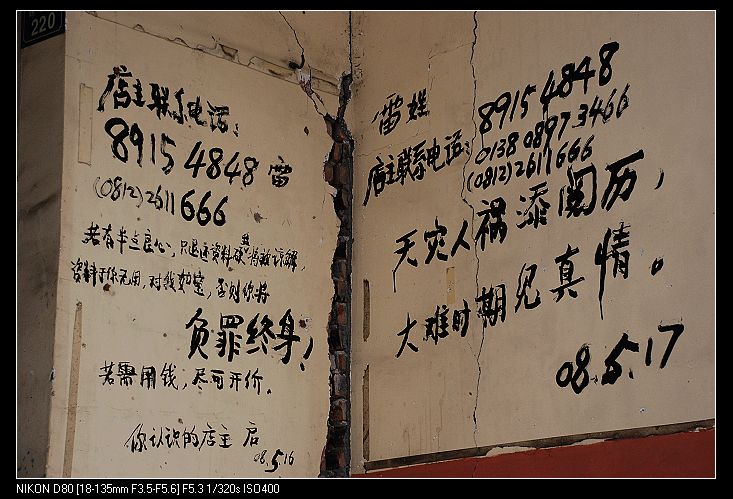 220
店主联系电话:
8915 4848 雷
(0812)2611666
若有半点良心,只退还资料
资料于你无用,对我如宝,否则你将
负罪终身!
若需用钱,尽可开价。
你认识的店主 启
08.5.16
雷姓
店主联系电话:
8915 4848
0138 0897 3466
(0812)2611666
天灾人祸添阅历,
大难时期见真情。
08.5.17
NIKON D80 [18-135mm F3.5-F5.6] F5.3 1/320s ISO400